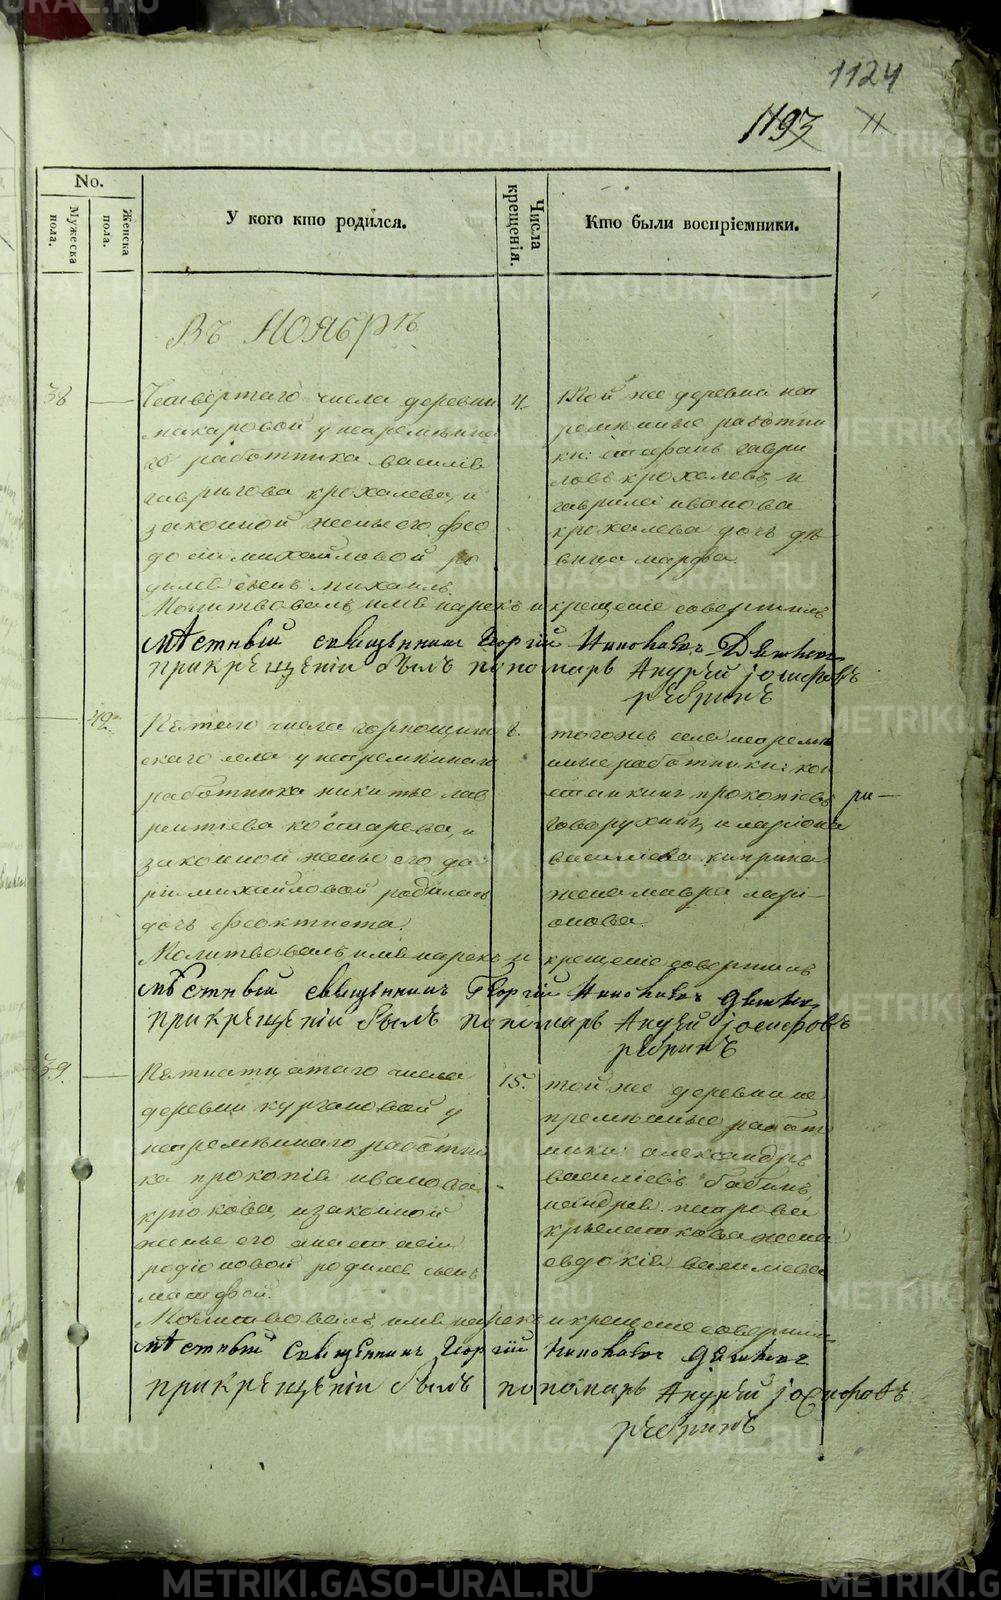 1124
1193 11
No.
Мужеска пола.
Женска пола.
У кого кто родился.
Числа крещенія.
Кто были воспріемники.
Въ Ноябрѣ
38
Четвертаго числа деревни
макаровой у непремѣнна
го работника василія
гаврилова крохалева, и
законной жены его фео
досіи михайловой ро
дился сынъ михаилъ.
4.
Той же деревни неп
ремѣнные работни
ки: стефанъ гаври
ловъ крохалевъ, и
гаврила иванова
крохалева дочь дѣ
вица марфа.
Молитвовалъ имя нарекъ и крещеніе совершилъ
мѣстный священникъ Георгій
прикрещеніи былъ пономарь Андрей іосифовъ
ребринъ
42
Пятаго числа горнощит
скаго села у непремѣннаго
работника никиты лав
рентіева костарева, и
законной жены его да
ріи михайловой родилась
дочь феоктиста.
5.
тогожъ села непремѣ
нные работники: кон
стантинъ прокопіевъ
говорухинъ, и ларіона
василіева киприна
жена мавра лари-
онова.
Молитвовалъ имя нарекъ и крещеніе совершилъ
мѣстный священникъ Георгій
прикрещеніи былъ пономарь Андрей іосифовъ
ребринъ
39.
Пятнатцатаго числа
деревни кургановой у
непремѣннаго работни
ка прокопія иванова
крюкова, и законной
жены его анастасіи
родіоновой родился сынъ
матфей.
15.
той же деревни не
премѣнные работ
ники: александръ
василіевъ бабинъ,
и андрея петрова
крылаткова жена
евдокія василіева
Молитвовалъ имя нарекъ и крещеніе совершилъ
мѣстный Священникъ Георгій
прикрещеніи былъ пономарь Андрей іосифовъ
ребринъ
METRIKI.GASO-URAL.RU